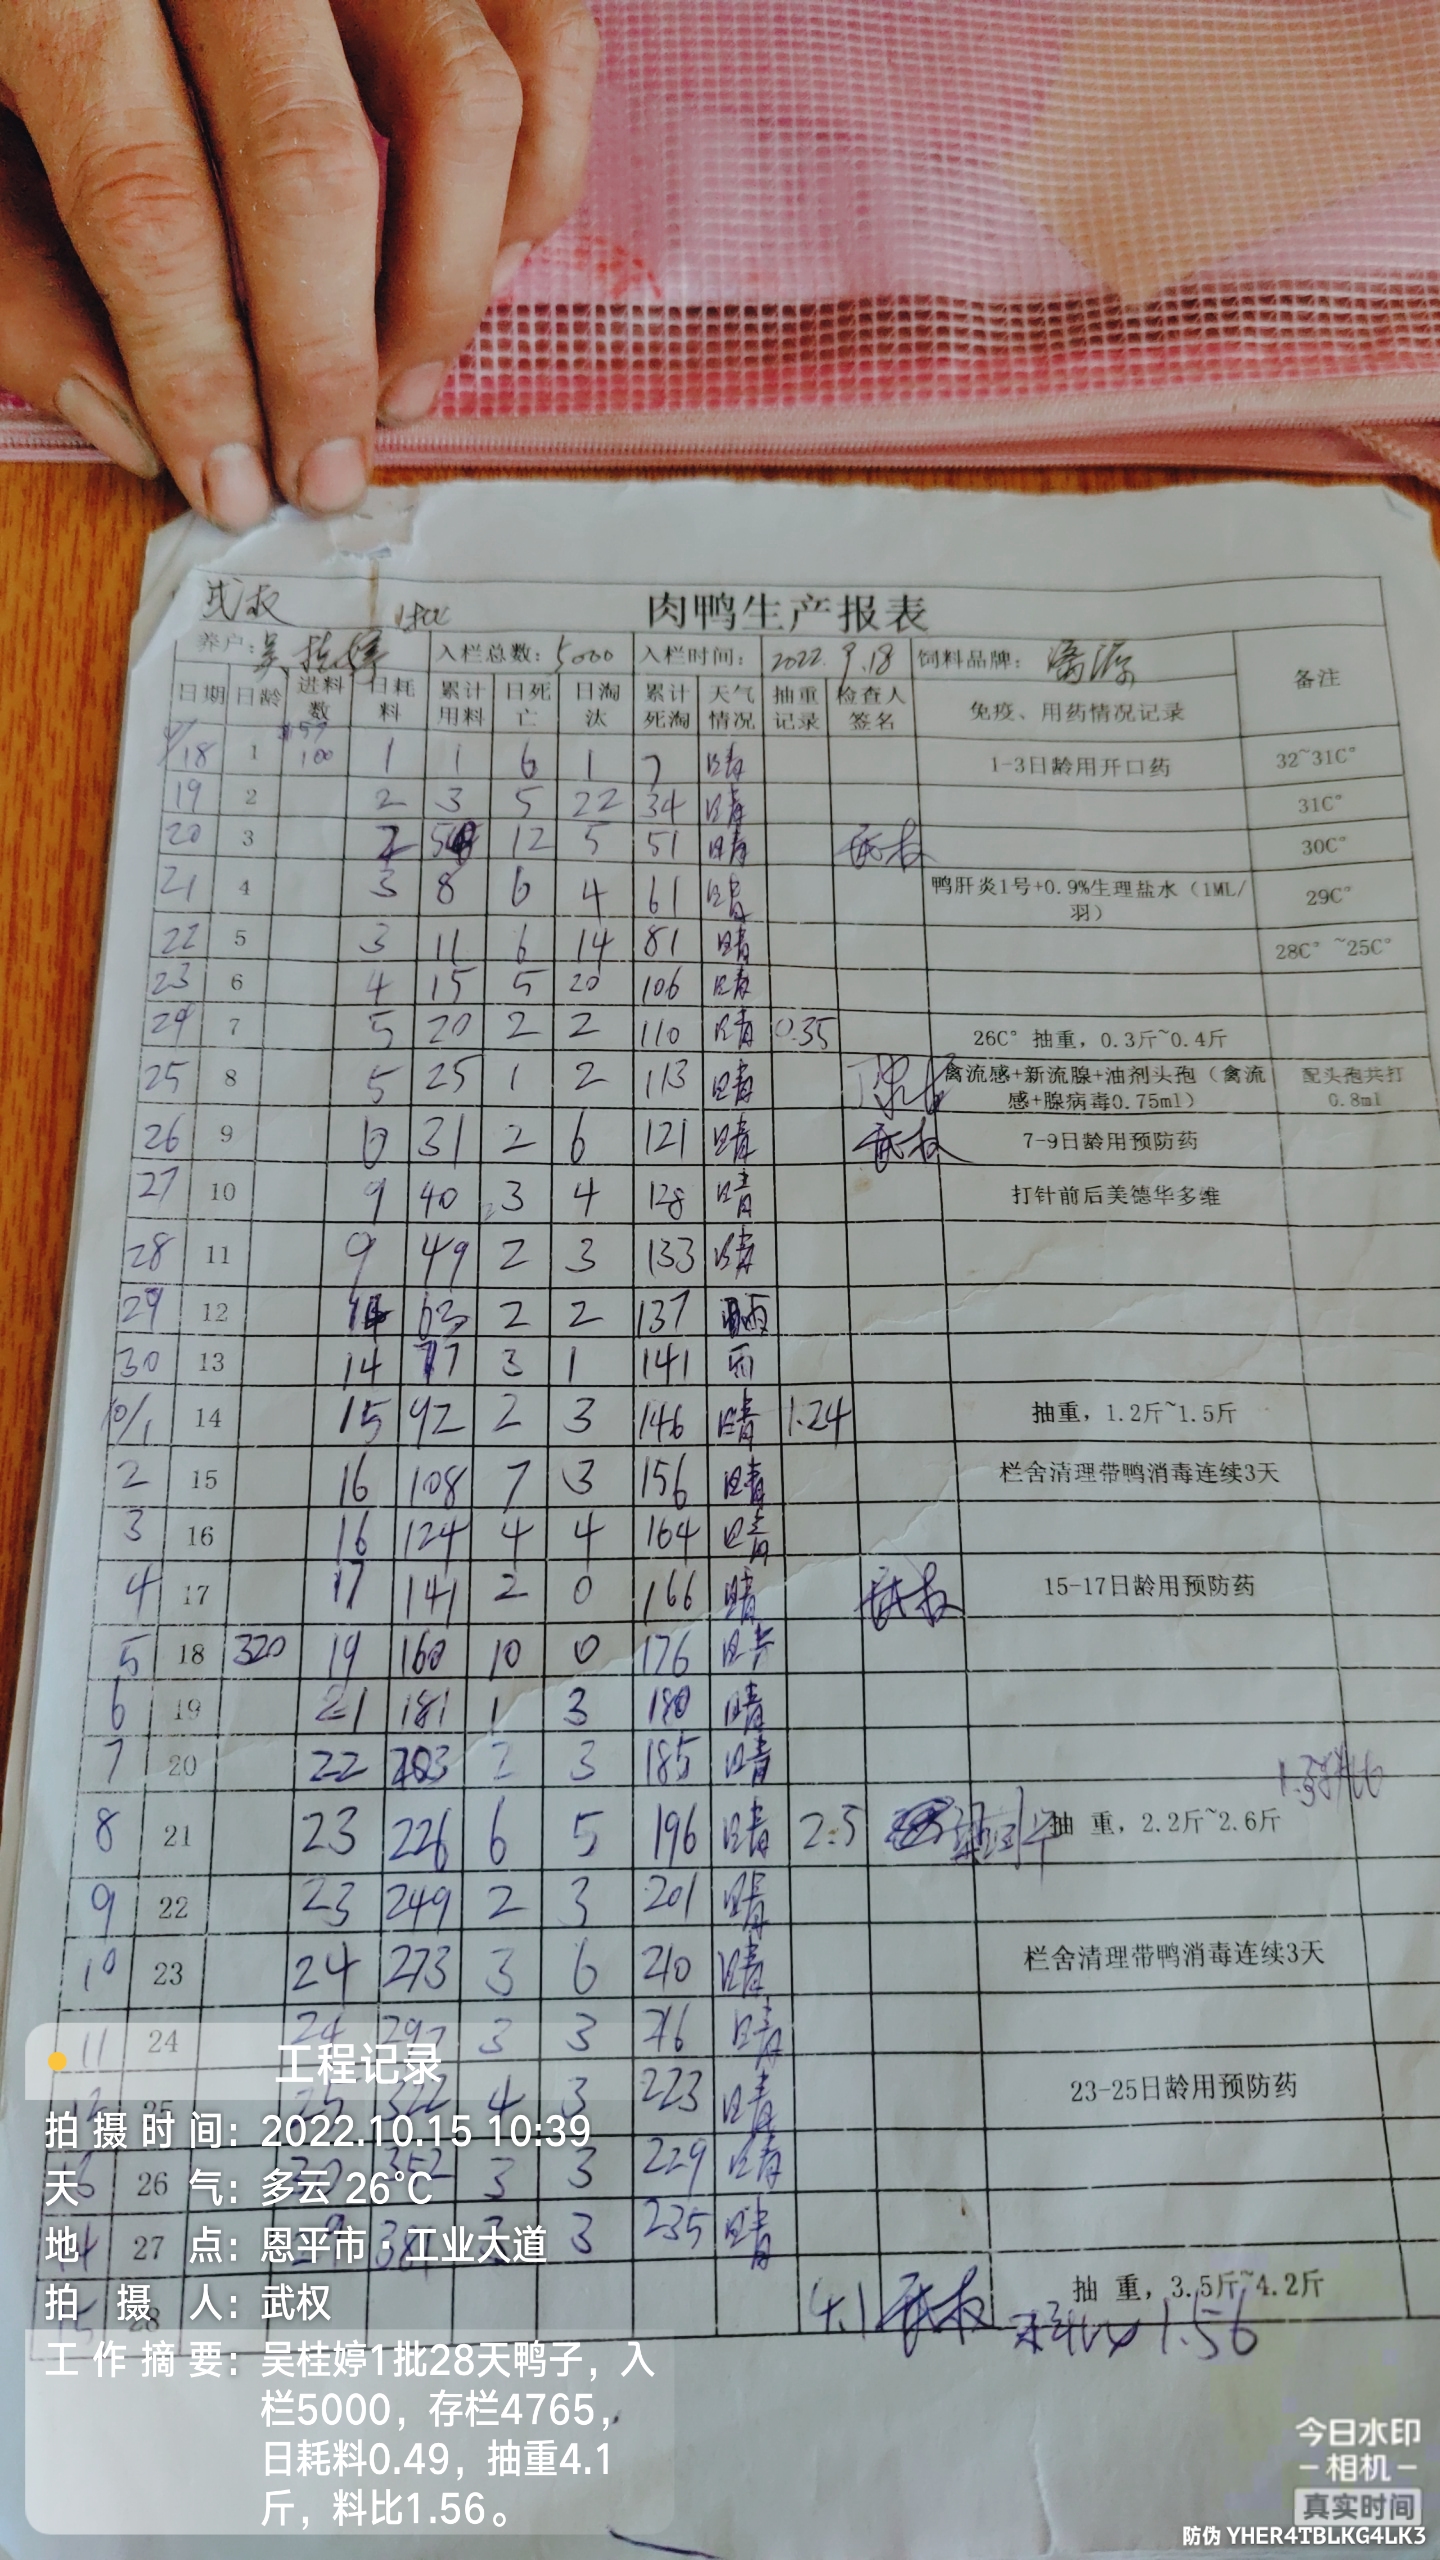 武权
肉鸭生产报表
养户: 吴 入栏总数: 5000 入栏时间: 2022.9.18 饲料品牌: 备注
日期 日龄 进料数 日耗料 累计用料 日死亡 日淘汰 累计死淘 天气情况 抽重记录 检查人签名 免疫、用药情况记录
9/18 1 100 1 1 6 1 7 晴 1-3日龄用开口药 32~31C°
19 2 2 3 5 22 34 晴 31C°
20 3 2 5 12 5 51 晴 武权 30C°
21 4 3 8 6 4 61 晴 鸭肝炎1号+0.9%生理盐水（1ML/羽） 29C°
22 5 3 11 6 14 81 晴 28C° ~25C°
23 6 4 15 5 20 106 晴
24 7 5 20 2 2 110 晴 0.35 26C° 抽重，0.3斤~0.4斤
25 8 5 25 1 2 113 晴 禽流感+新流腺+油剂头孢（禽流感+腺病毒0.75ml） 配头孢共打0.8ml
26 9 6 31 2 6 121 晴 武权 7-9日龄用预防药
27 10 9 40 3 4 128 晴 打针前后美德华多维
28 11 9 49 2 3 133 晴
29 12 14 63 2 2 137 雨
30 13 14 77 3 1 141 雨
10/1 14 15 92 2 3 146 晴 1.24 抽重，1.2斤~1.5斤
2 15 16 108 7 3 156 晴 栏舍清理带鸭消毒连续3天
3 16 16 124 4 4 164 晴
4 17 17 141 2 0 166 晴 武权 15-17日龄用预防药
5 18 320 19 160 10 0 176 晴
6 19 21 181 1 3 180 晴
7 20 22 203 2 3 185 晴
8 21 23 226 6 5 196 晴 2.5 抽 重，2.2斤~2.6斤
9 22 23 249 2 3 201 晴
10 23 24 273 3 6 210 晴 栏舍清理带鸭消毒连续3天
11 24 24 297 3 3 216 晴
12 25 25 322 4 3 223 晴 23-25日龄用预防药
13 26 30 352 3 3 229 晴
14 27 29 381 3 3 235 晴
15 28 4.1 武权 抽 重，3.5斤~4.2斤
料比 1.56
工程记录
拍摄时间: 2022.10.15 10:39
天气: 多云 26°C
地点: 恩平市·工业大道
拍摄人: 武权
工作摘要: 吴桂婷1批28天鸭子，入
栏5000，存栏4765，
日耗料0.49，抽重4.1
斤，料比1.56。
今日水印
相机
真实时间
防伪 YHER4TBLKG4LK3